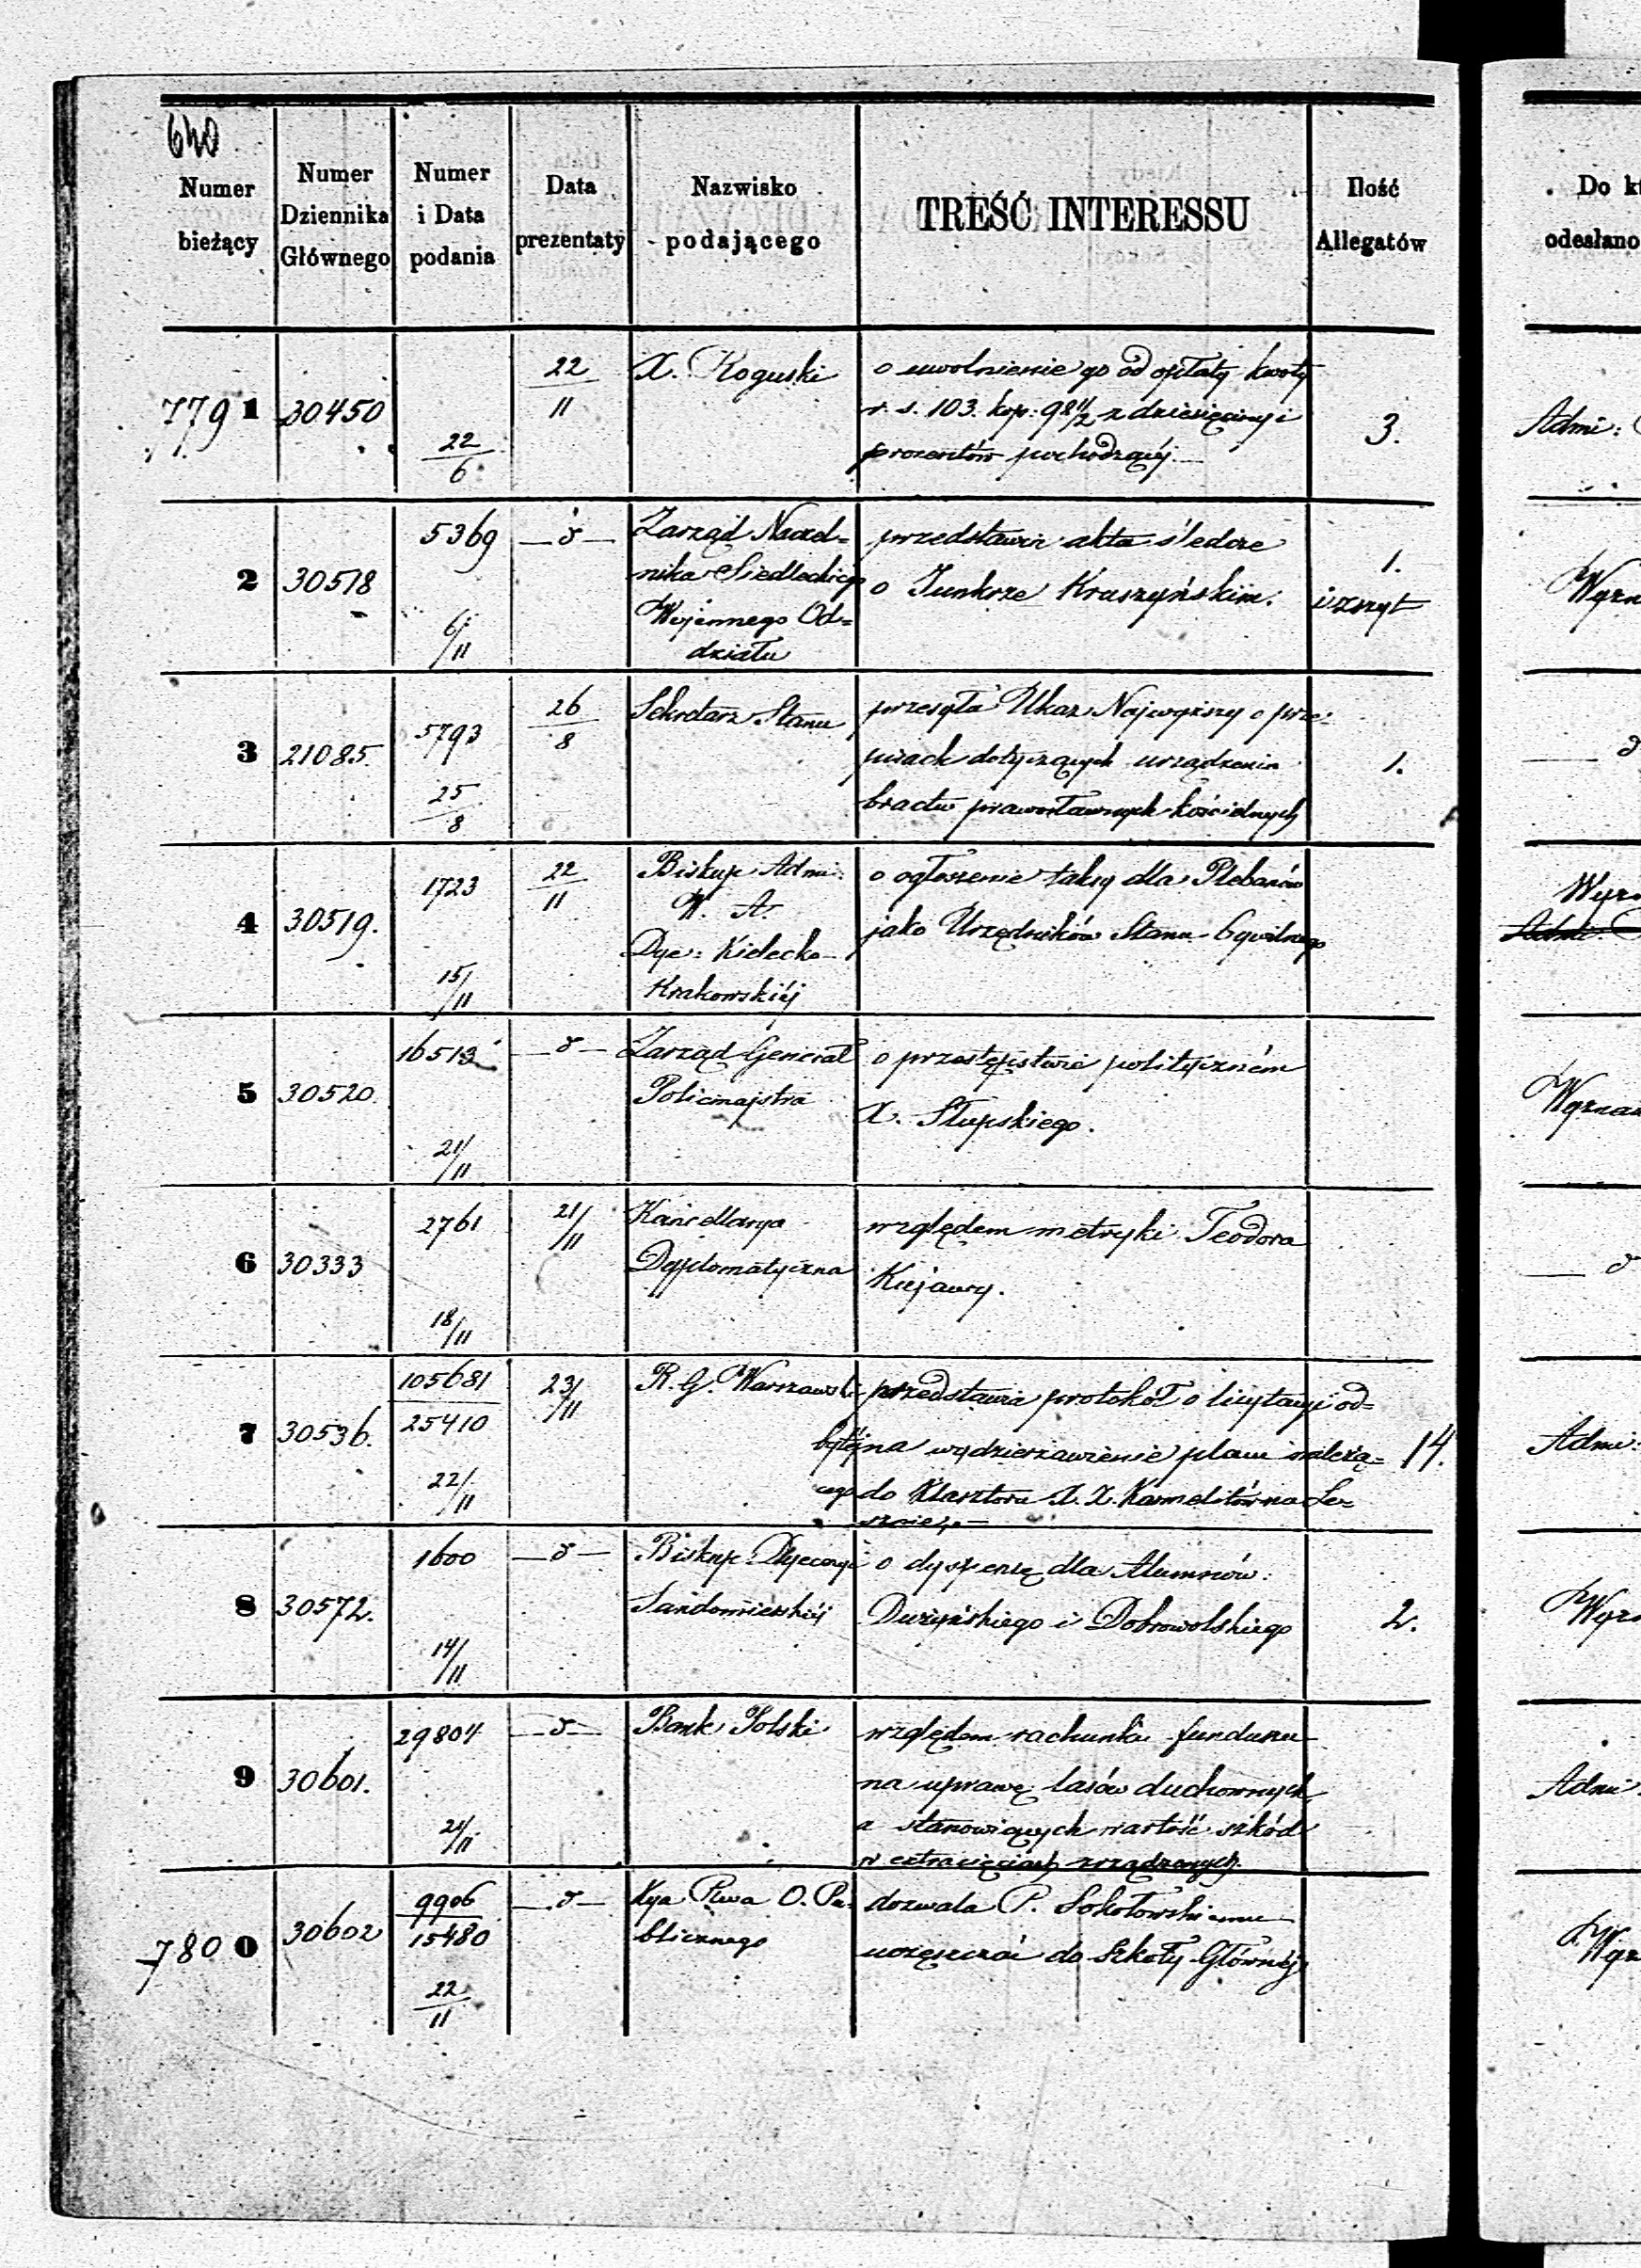 640
Numer bieżący
Numer Dziennika Głównego
Numer i Data podania
Data prezentaty
Nazwisko podającego
TREŚĆ INTERESSU
Ilość Allegatów
Do
odesłano
7791
30450
22/6
22/11
X. Roguski
o uwolnienie go od opłaty kwoty
r. s. 103. kop: 98 1/2 z dziesięciny i
procentów pochodzącej.
3.
Admi:
2
30518
5369
6/11
— d —
Zarząd Naczel=
nika Siedleckiego
Wojennego Od=
działu
przedstawia akta śledcze
o Junkrze Kraszyńskim.
1.
i zszyt
3
21085.
5793
25/8
26/8
Sekretarz Stanu
przesyła Ukaz Najwyższy o prze=
pisach dotyczących urządzenia
bractw prawosławnych kościelnych
1.
— d
4
30519.
1723
15/11
22/11
Biskup Admi:
W. A.
Dye: Kielecko-
Krakowskiéj
o ogłoszenie taksy dla Plebanów
jako Urzędników Stanu Cywilnego
5
30520.
16512
21/11
— d —
Zarząd Generał
Policmajstra
o przestępstwie polityczném
X. Słupskiego.
6
30333
2761
18/11
21/11
Kancellarya
Dyplomatyczna
względem metryki Teodora
Kujawy.
— d
7
30536.
105681
25410
22/11
23/11
R. G. Warszawski
przedstawia protokół o licytacyi od=
bytéj na wydzierżawienie placu należą=
cego do Klasztoru X. X. Karmelitów na Le=
sznie.—
14.
Admi:
8
30572.
1600
14/11
— d —
Biskup Dyecezyi
Sandomierskiéj
o dyspensę dla Alumnów:
Dużyńskiego i Dobrowolskiego
2.
9
30601.
29804
21/11
— d —
Bank Polski
względem rachunku funduszu
na uprawę lasów duchownych,
a stanowiących wartość szkód
w extracięciach zrządzonych.
Admi:
7800
30602
9906
15480
22/11
— d —
Kya Rwa O. Pu=
blicznego
dozwala P. Sokołowskiemu
uczęszczać do Szkoły Głównéj.